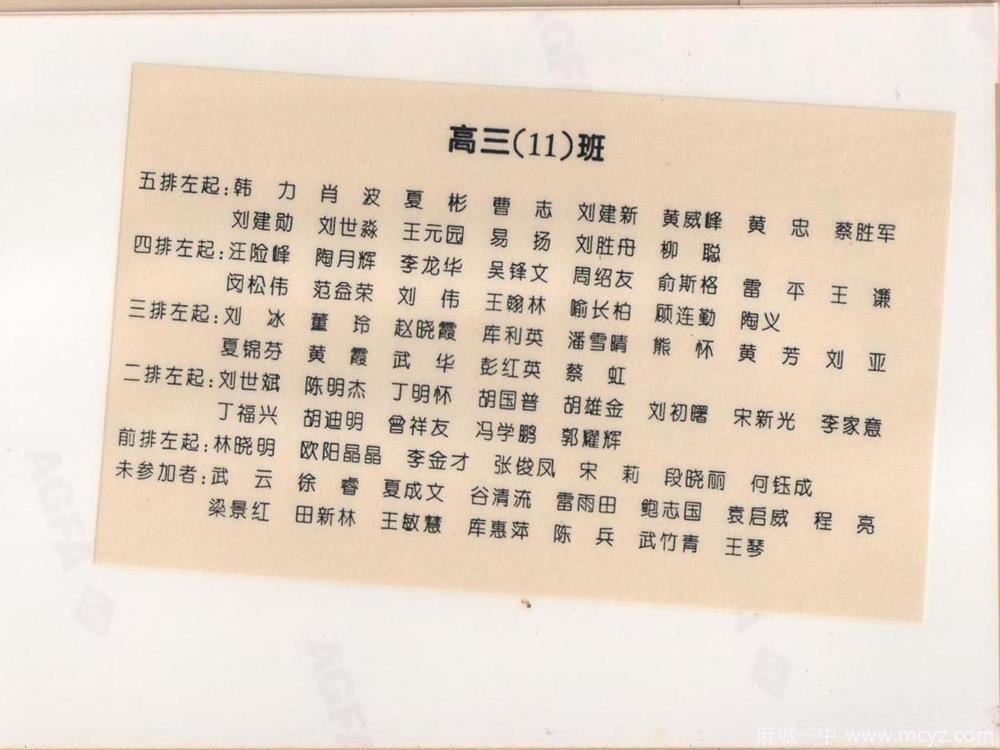 高三(11)班
五排左起:韩 力 肖 波 夏 彬 曹 志 刘建新 黄威峰 黄 忠 蔡胜军
刘建勋 刘世淼 王元园 易 扬 刘胜舟 柳 聪
四排左起:汪险峰 陶月辉 李龙华 吴锋文 周绍友 俞斯格 雷 平 王 谦
闵松伟 范益荣 刘 伟 王翰林 喻长柏 顾连勤 陶义
三排左起:刘 冰 董 玲 赵晓霞 库利英 潘雪晴 熊 怀 黄 芳 刘 亚
夏锦芬 黄 霞 武 华 彭红英 蔡 虹
二排左起:刘世斌 陈明杰 丁明怀 胡国普 胡雄金 刘初曙 宋新光 李家意
丁福兴 胡迪明 曾祥友 冯学鹏 郭耀辉
前排左起:林晓明 欧阳晶晶 李金才 张俊凤 宋 莉 段晓丽 何钰成
未参加者:武 云 徐 睿 夏成文 谷清流 雷雨田 鲍志国 袁启威 程 亮
梁景红 田新林 王敏慧 库惠萍 陈 兵 武竹青 王琴
AGFA
AGFA
AGFA
AGFA
麻城一中 www.mcyz.com